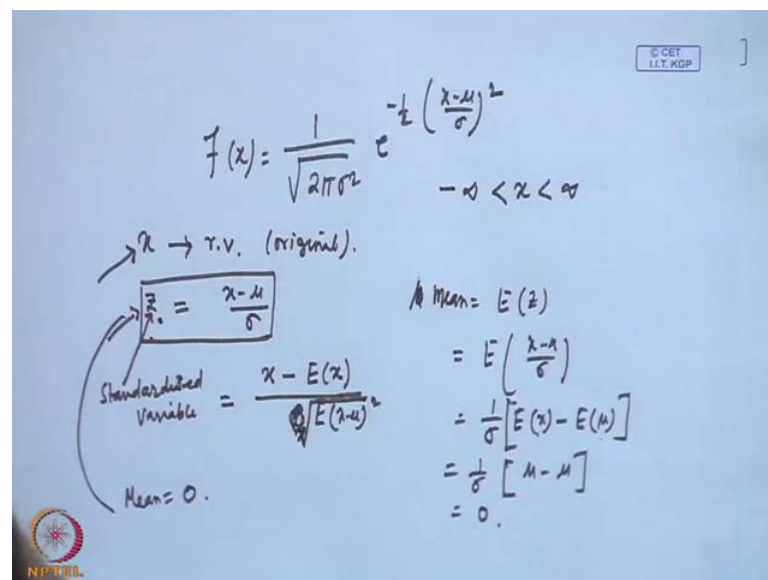 © CET
I.I.T. KGP
f(x) = 1/√(2πσ²) e^(-½ ((x-μ)/σ)²)
-∞ < x < ∞
x → r.v. (original).
Z = (x-μ)/σ
Standardised Variable
= (x - E(x))/√(E(x-μ)²)
Mean = 0.
Mean = E(z)
= E((x-μ)/σ)
= 1/σ [E(x) - E(μ)]
= 1/σ [μ-μ]
= 0.
NPTEL